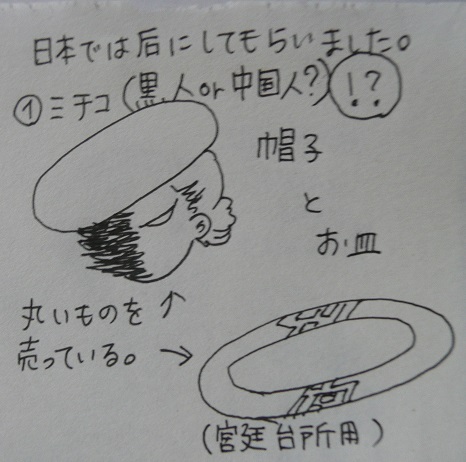 日本では后にしてもらいました。
①ミチコ(黒人or中国人?)!?
帽子
と
お皿
丸いものを↑
売っている。→
(宮廷台所用)